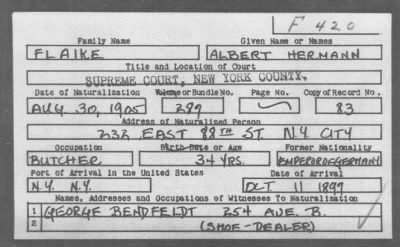 F 420
Family Name Given Name or Names
FLAIKE ALBERT HERMANN
Title and Location of Court
SUPREME COURT, NEW YORK COUNTY.
Date of Naturalization Volume or Bundle No. Page No. Copy of Record No.
AUG. 30, 1905 289 83
Address of Naturalized Person
232 EAST 88TH ST. N.Y. CITY
Occupation Birth Date or Age Former Nationality
BUTCHER 34 YRS. EMPEROR OF GERMANY
Port of Arrival in the United States Date of Arrival
N.Y. N.Y. OCT 11 1897
Names, Addresses and Occupations of Witnesses To Naturalization
1 GEORGE BENDFELDT 254 AVE. B.
2 (SHOE-DEALER)